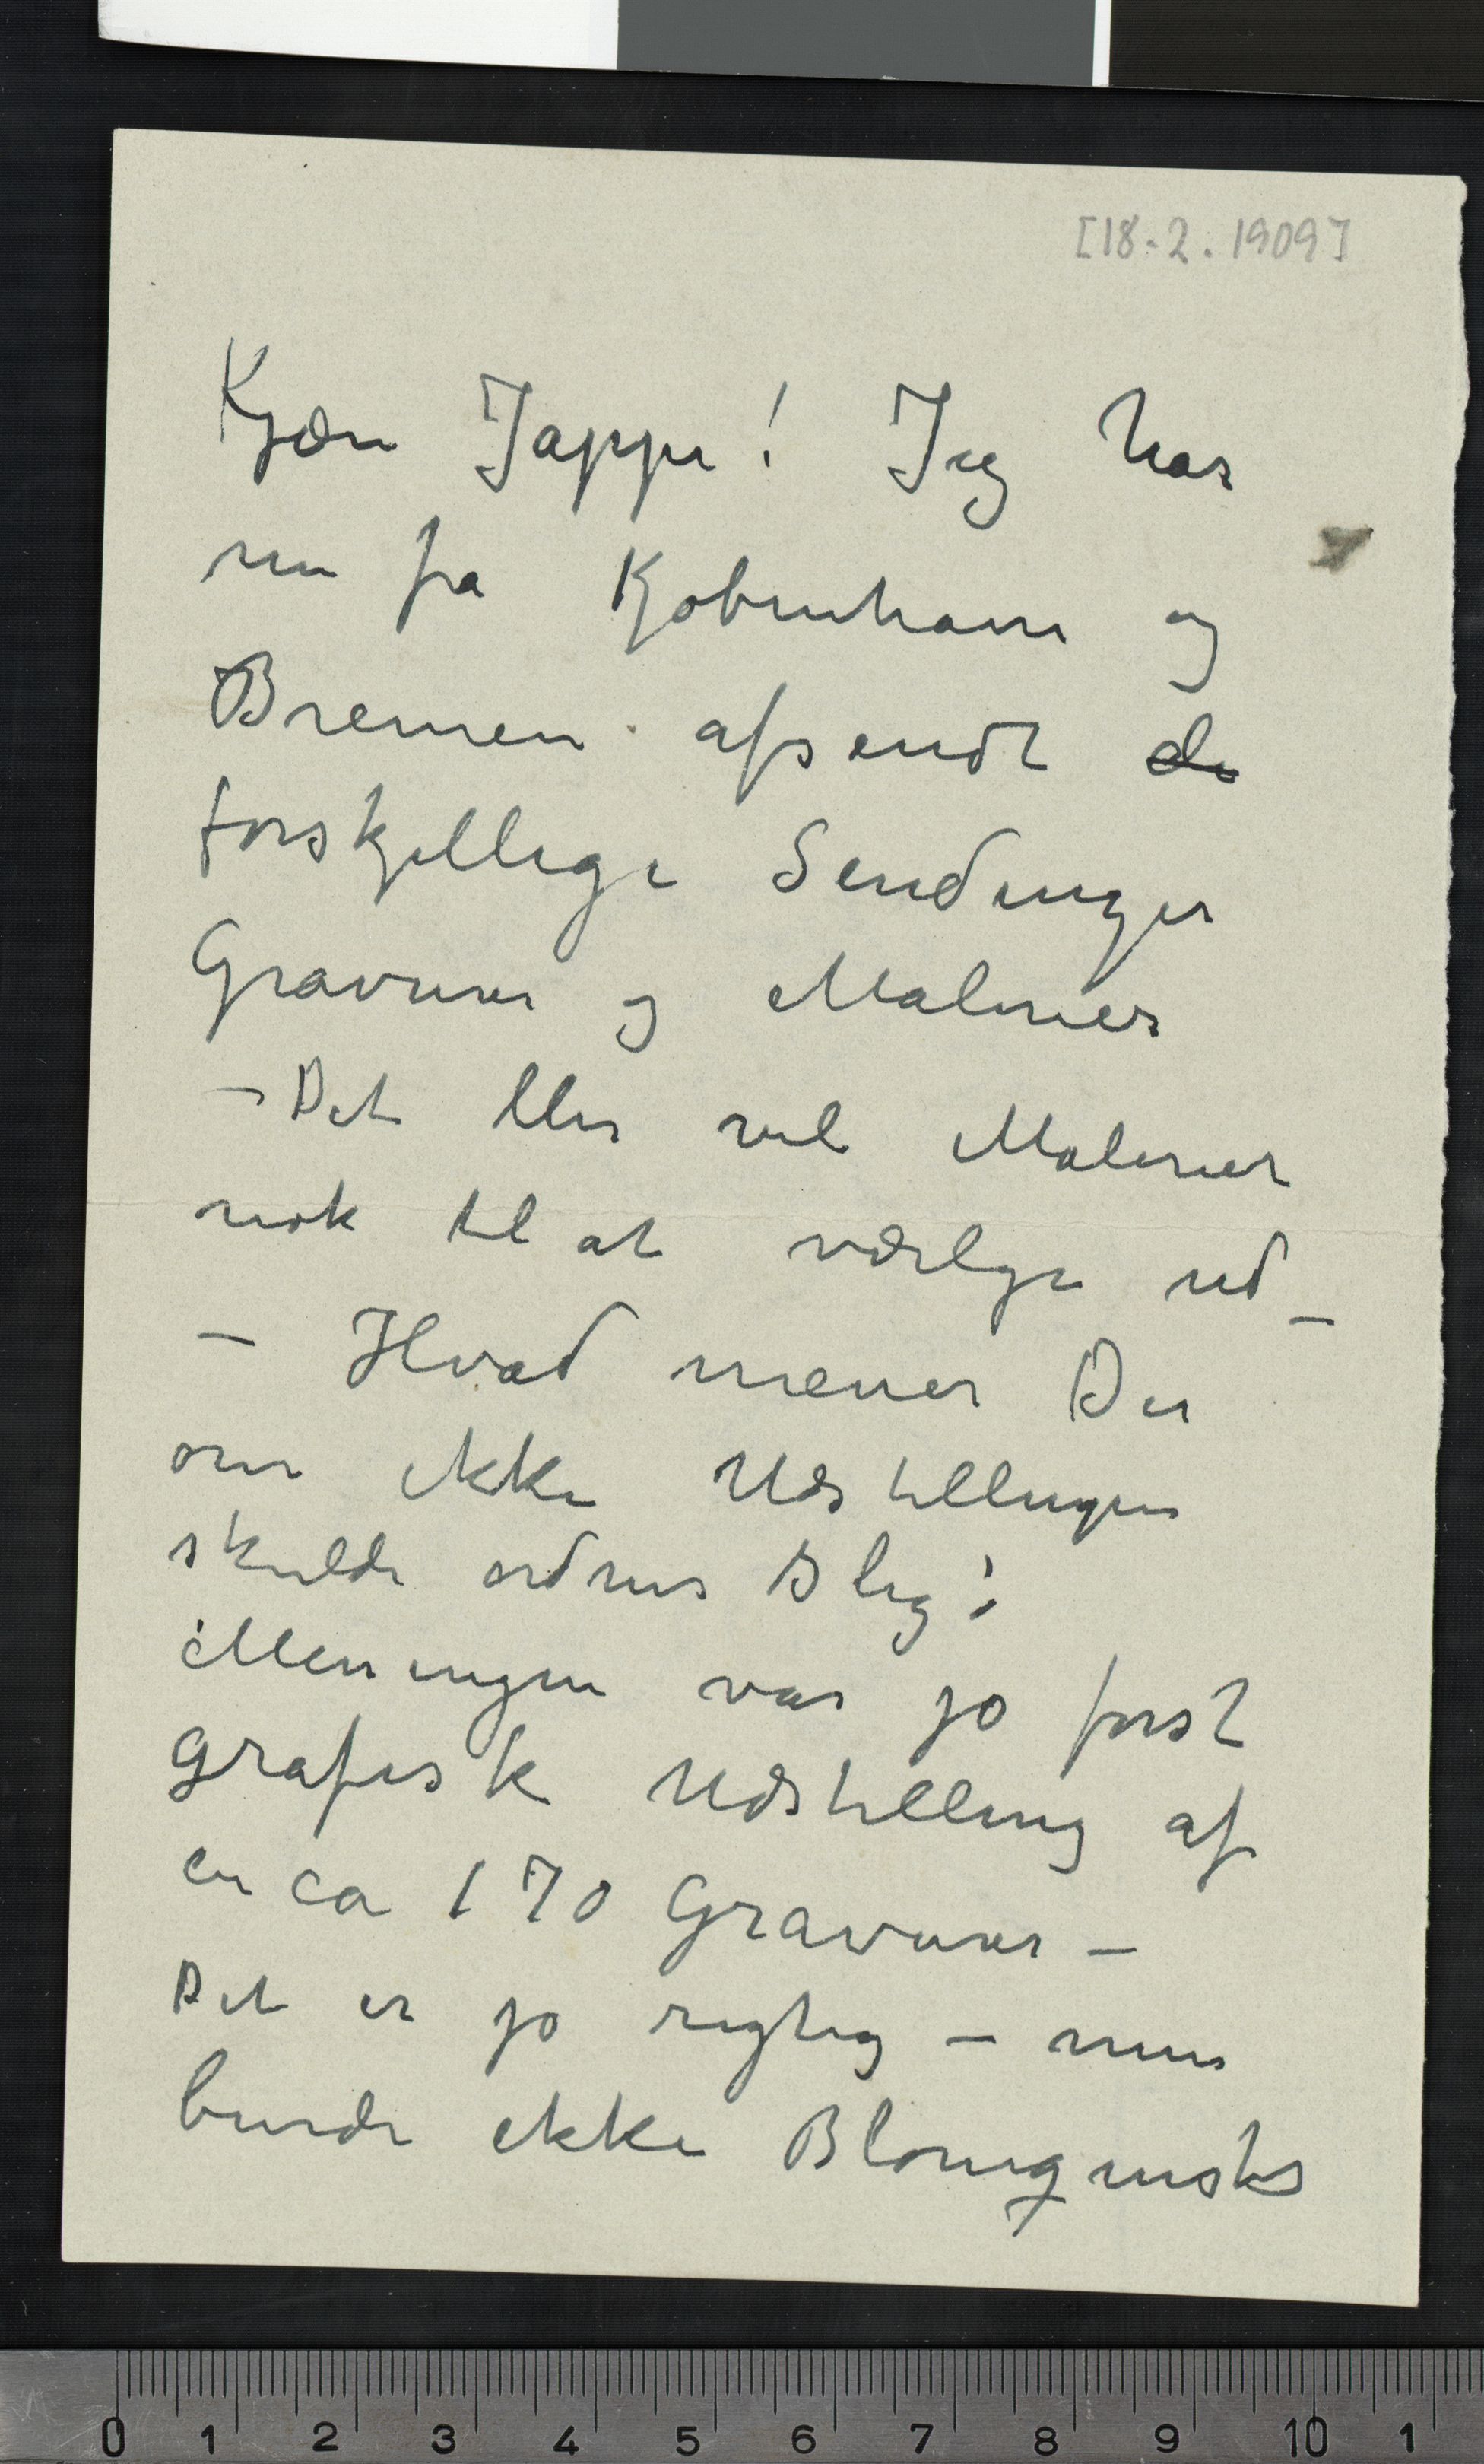 [18.2.1909]
Kjære Jappe! Jeg har
nu fra Kjøbenhavn og
Bremen afsendt de
forskjellige Sendinger
Gravurer og Malerier
– Det blir vel Malerier
nok til at vælge ud –
– Hvad mener Du
om ikke Udstillingen
skulde ordnes slig:
Meningen var jo først
grafisk Udstilling af
circa 170 Gravurer –
Det er jo rigtig – men
burde ikke Blomqvists
0 1 2 3 4 5 6 7 8 9 10 1